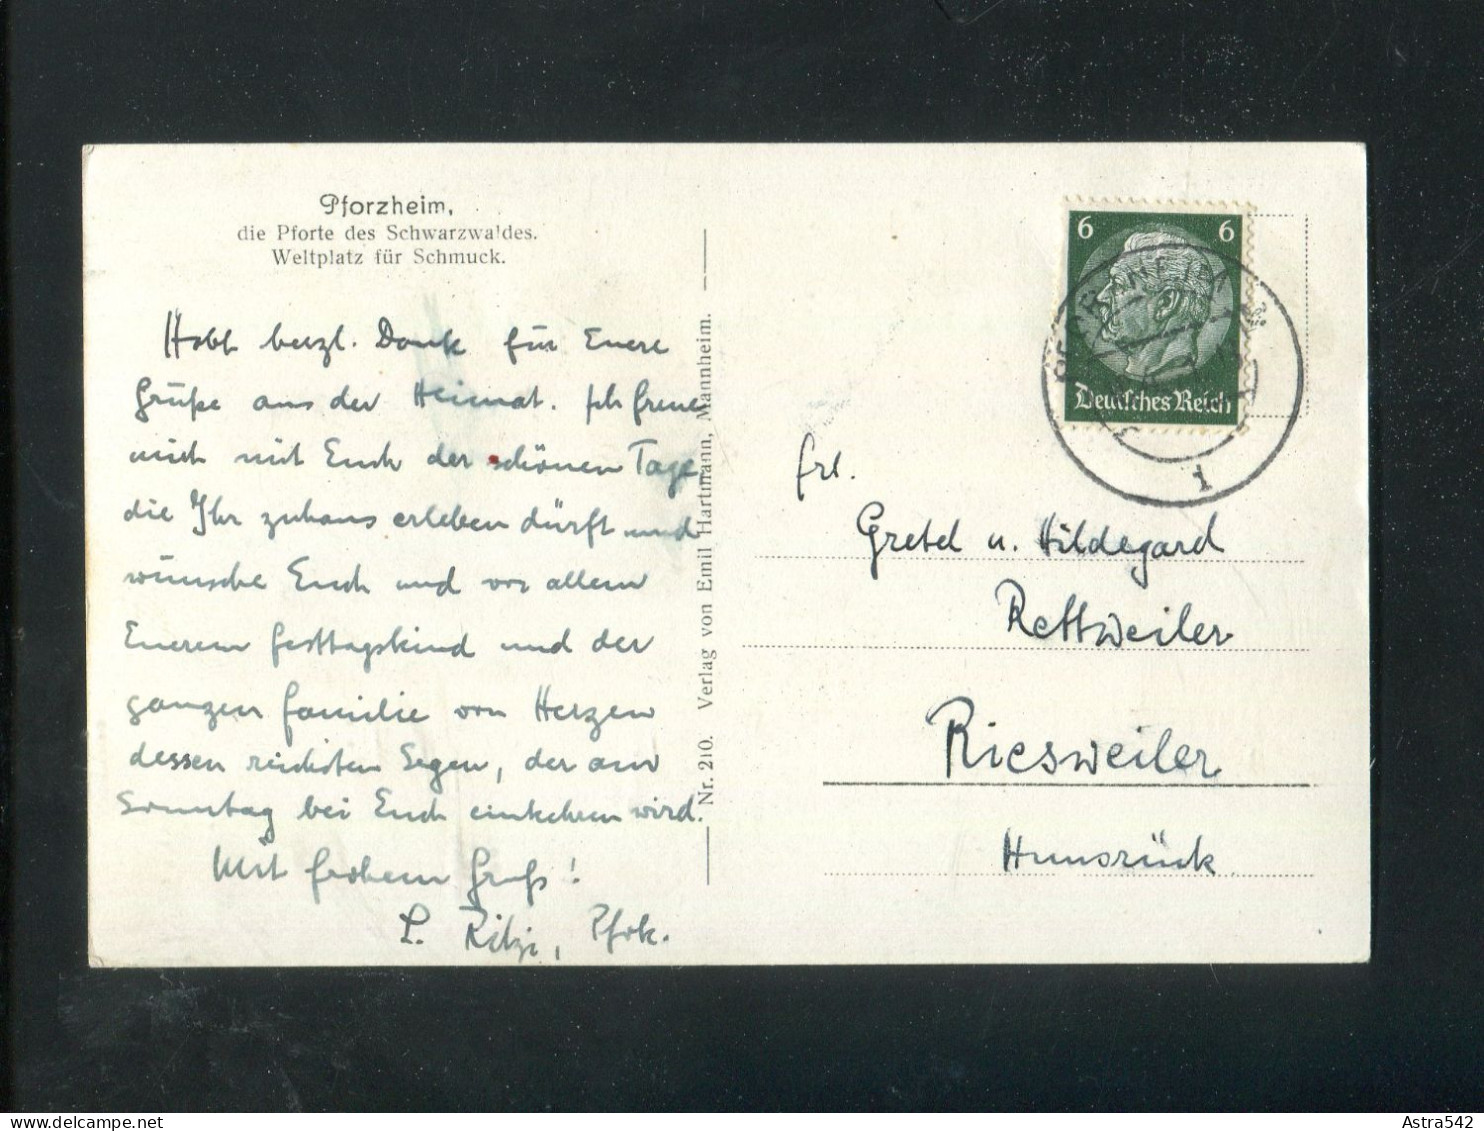 Pforzheim,
die Pforte des Schwarzwaldes.
Weltplatz für Schmuck.
Habt herzl. Dank für Euere
Grüße aus der Heimat. Ich freue
mich mit Euch der schönen Tage,
die Ihr zuhaus erleben dürft und
wünsche Euch und vor allem
Euerem Festtagskind und der
ganzen Familie von Herzen
dessen reichsten Segen, der am
Sonntag bei Euch einkehren wird.
Mit frohem Gruß!
L. Ritzi, Pfvk.
Nr. 210. Verlag von Emil Hartmann, Mannheim.
6 6
Deutsches Reich
1
Frl.
Gretel u. Hildegard
Rettweiler
Riesweiler
Hunsrück
Astra542